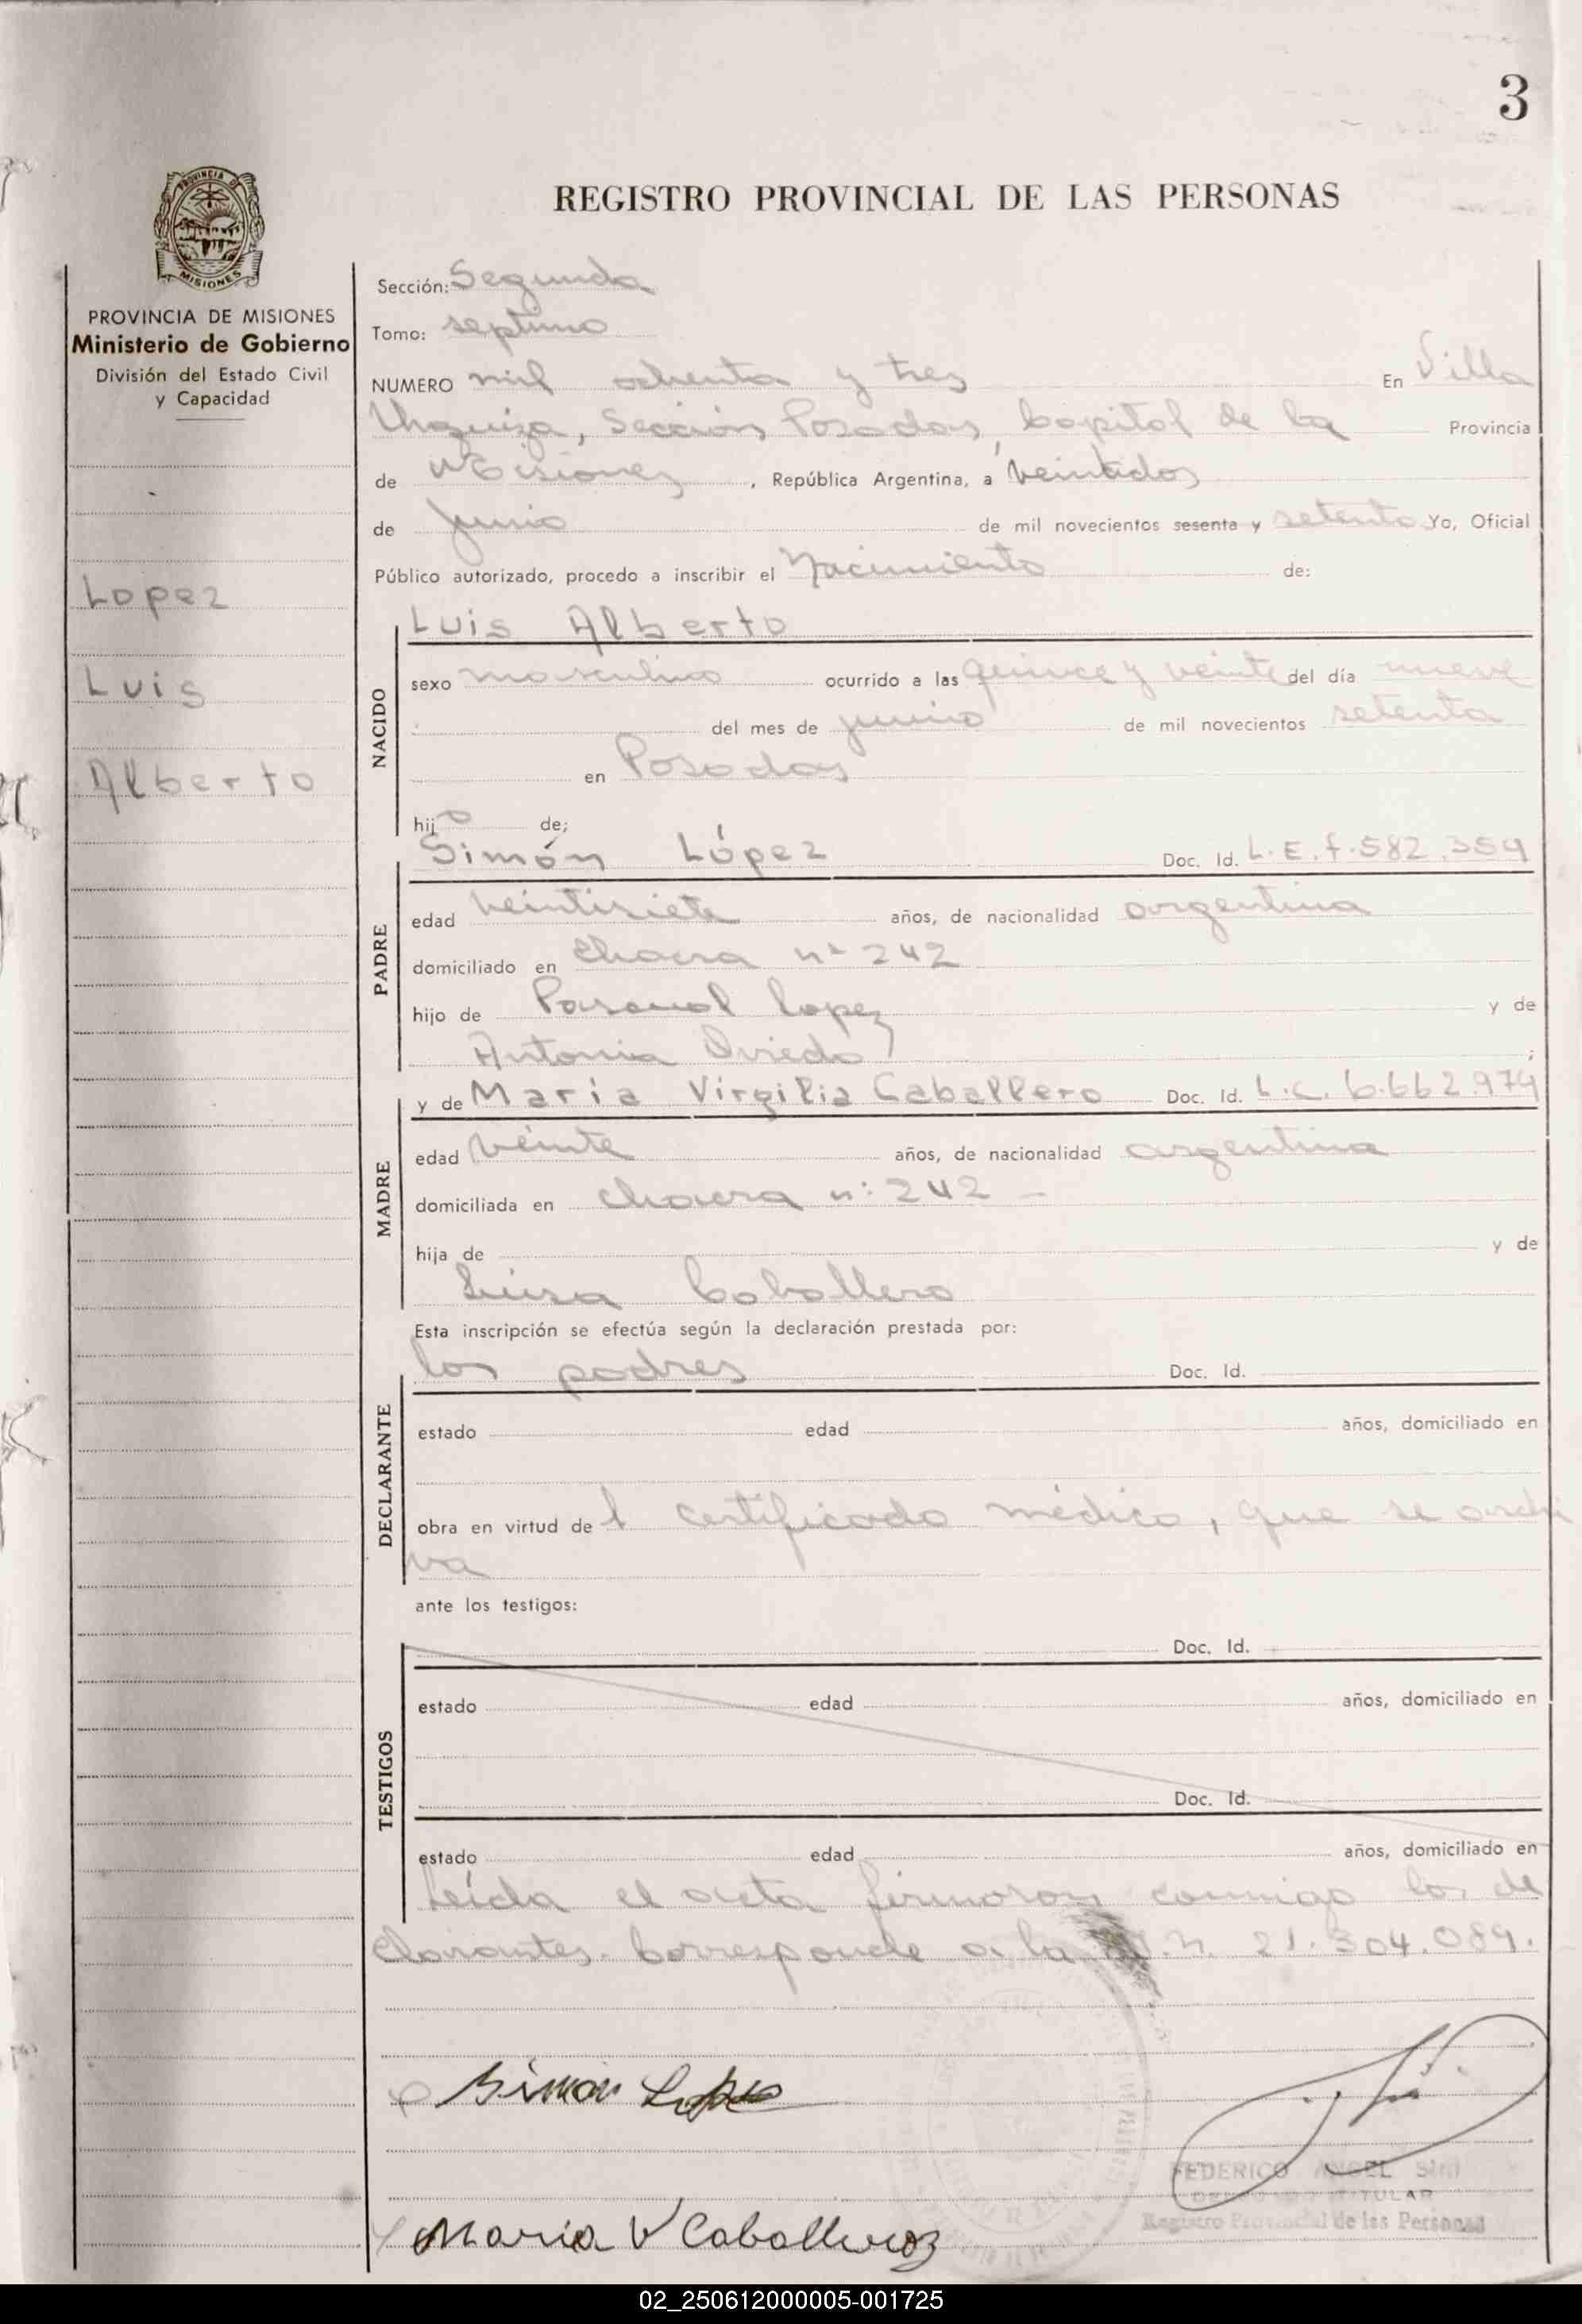 3
REGISTRO PROVINCIAL DE LAS PERSONAS
PROVINCIA DE
MISIONES
PROVINCIA DE MISIONES
Ministerio de Gobierno
División del Estado Civil
y Capacidad
Lopez
Luis
Alberto
Sección: Segunda
Tomo: septimo
NUMERO mil ochenta y tres En Villa
Urquiza, Sección Posadas, Capital de la Provincia
de Misiones, República Argentina, a veintidos
de junio de mil novecientos sesenta y setenta Yo, Oficial
Público autorizado, procedo a inscribir el Nacimiento de:
NACIDO
Luis Alberto
sexo masculino ocurrido a las quince y veinte del día nueve
del mes de junio de mil novecientos setenta
en Posadas
hijo de;
PADRE
Simón López Doc. Id. L.E. 7.582.354
edad veintisiete años, de nacionalidad argentina
domiciliado en Chacra nº 242
hijo de Pascual Lopez y de
Antonia Oviedo ;
MADRE
y de María Virgilia Caballero Doc. Id. L.C. 6.662.974
edad veinte años, de nacionalidad argentina
domiciliada en chacra nº 242 -
hija de y de
Luisa Caballero
Esta inscripción se efectúa según la declaración prestada por:
DECLARANTE
los padres Doc. Id.
estado edad años, domiciliado en
obra en virtud del certificado médico, que se archi
va
ante los testigos:
TESTIGOS
Doc. Id.
estado edad años, domiciliado en
Doc. Id.
estado edad años, domiciliado en
Leída el acta firmaron conmigo los de
clarantes. Corresponde a la M.N. 21.304.089.
Simon Lopez
FEDERICO ANGEL
TITULAR
Registro Provincial de las Personas
Maria V Caballero
02_250612000005-001725